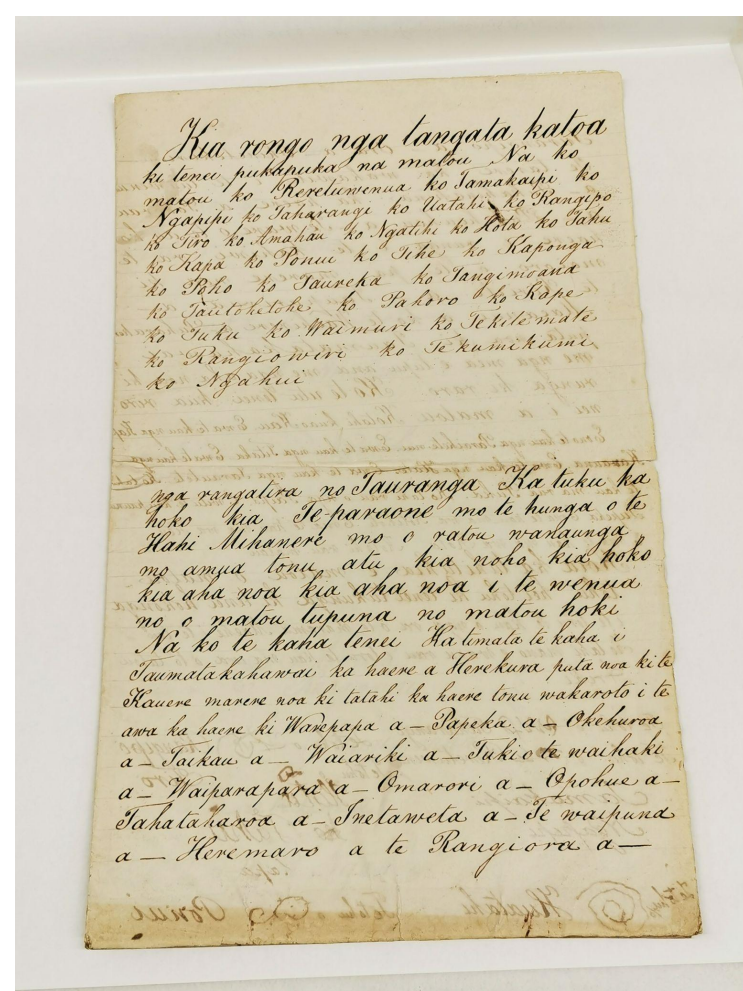 Kia rongo nga tangata katoa
ki tenei pukapuka na matou Na ko
matou ko Reretuwenua ko Tamakaipi ko
Ngapipi ko Taharangi ko Uatahi ko Rangipo
ko Tiro ko Amahau ko Ngatihi ko Hota ko Tahu
ko Kapa ko Ponui ko Tihe ko Kaponga
ko Poho ko Taureka ko Tangimoana
ko Tautohetohe ko Pahoro ko Kape
ko Tuku ko Waimuri ko Tekitemate
ko Rangiowiri ko Tekumikumi
ko Ngahui
nga rangatira no Tauranga Ka tuku ka
hoko kia Te-paraone mo te hunga o te
Hahi Mihanere mo o ratou wanaunga
mo amua tonu atu kia noho kia hoko
kia aha noa kia aha noa i te wenua
no o matou tupuna no matou hoki
Na ko te kaha tenei Ka timata te kaha i
Taumatakahawai ka haere a Herekura puta noa ki te
Kauere marere noa ki tatahi ka haere tonu wakaroto i te
awa ka haere ki Warepapa a — Papeka a — Okehuroa
a — Taikau a — Waiariki a — Tukiote waihaki
a — Waiparapara a — Omarori a — Opohue a —
Tahataharoa a — Inetaweta a — Te waipuna
a — Heremaro a te Rangiora a —